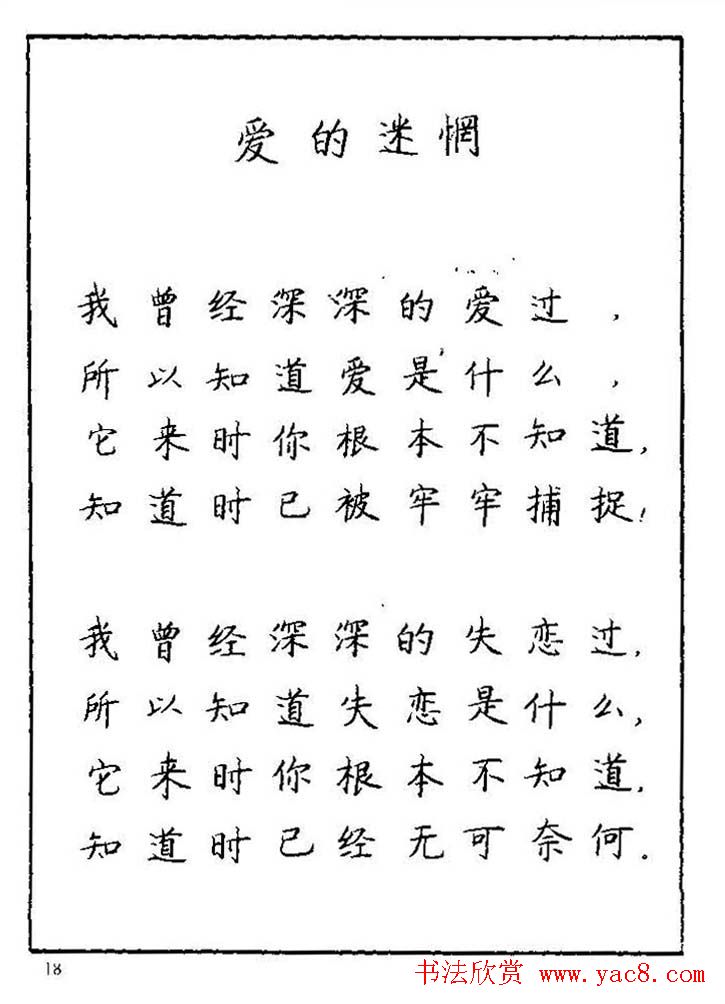 爱的迷惘
我曾经深深的爱过，
所以知道爱是什么，
它来时你根本不知道，
知道时已被牢牢捕捉！
我曾经深深的失恋过，
所以知道失恋是什么，
它来时你根本不知道，
知道时已经无可奈何。
18
书法欣赏 www.yac8.com